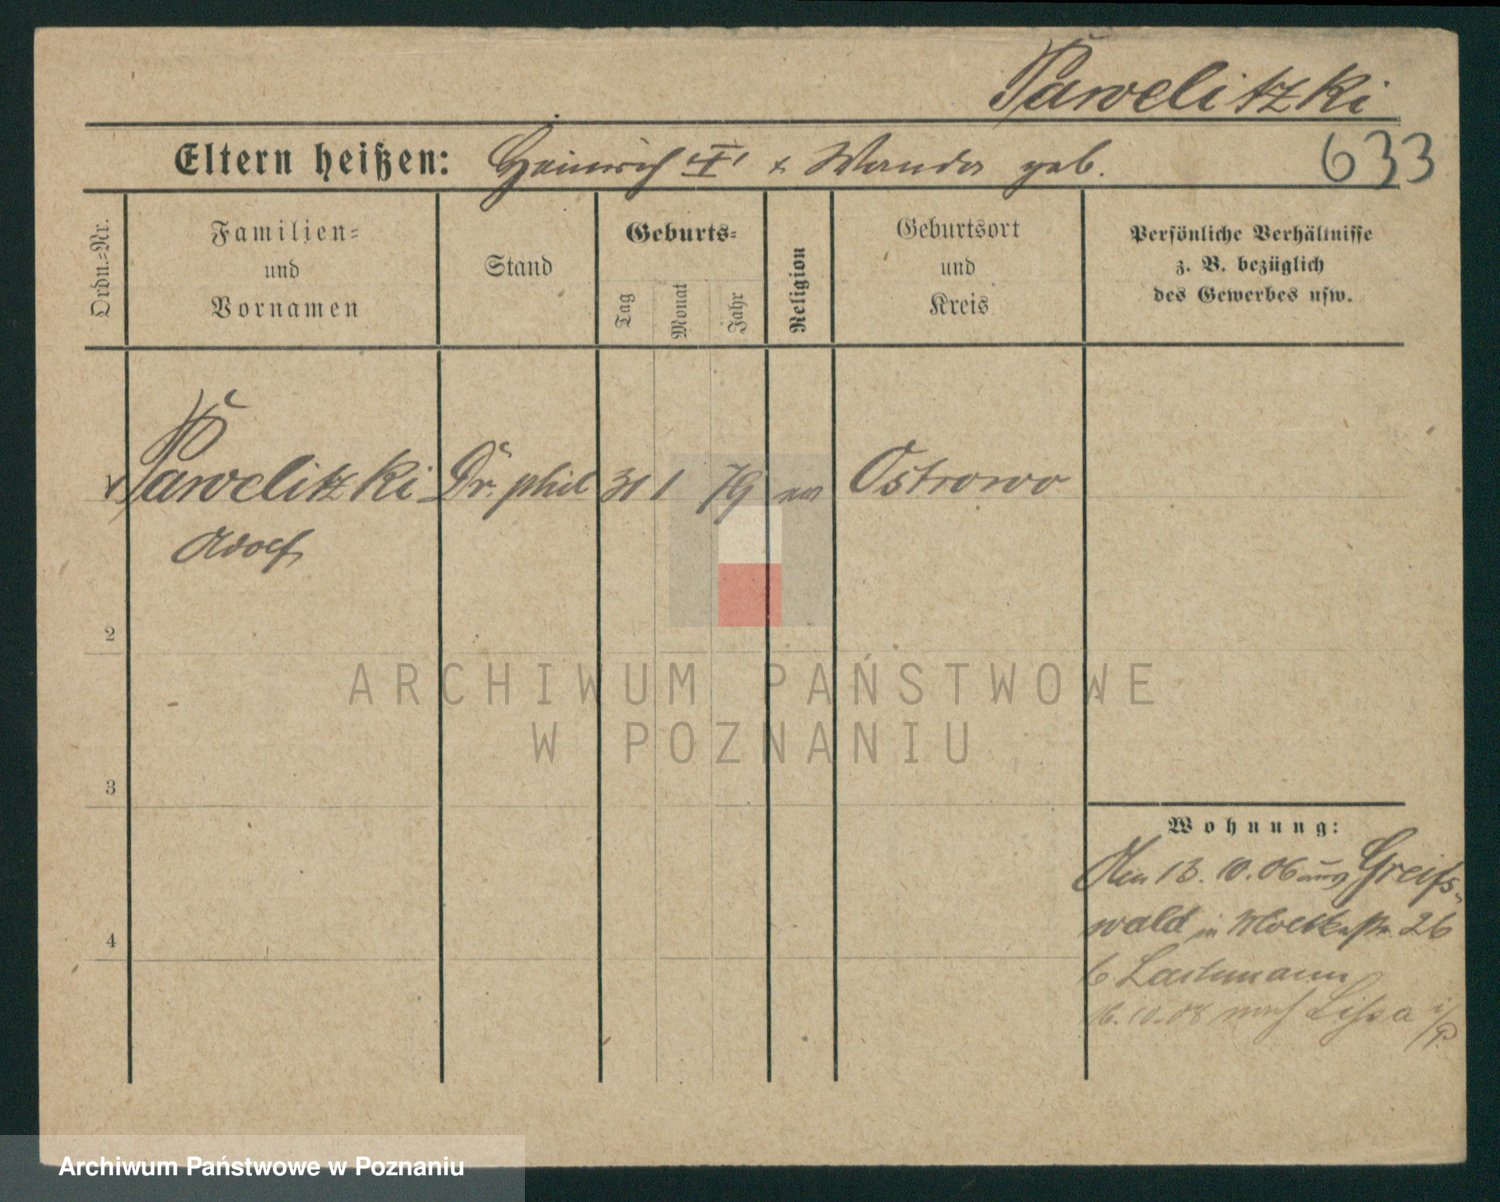 Pawelitzki
633
Eltern heißen: Heinrich "T" & Wanda geb.
Ordn.-Nr.
Familien-
und
Vornamen
Stand
Geburts-
Tag
Monat
Jahr
Religion
Geburtsort
und
Kreis
Persönliche Verhältnisse
z. B. bezüglich
des Gewerbes usw.
1 Pawelitzki Dr. phil 31 1 79 ev Ostrowo
Adolf
2
3
4
Wohnung:
13. 10. 06 aus Greifs-
wald in Moltkestr. 26
b. Lachmann
16. 10. 08 nach Lissa i/P.
ARCHIWUM PAŃSTWOWE
W POZNANIU
Archiwum Państwowe w Poznaniu